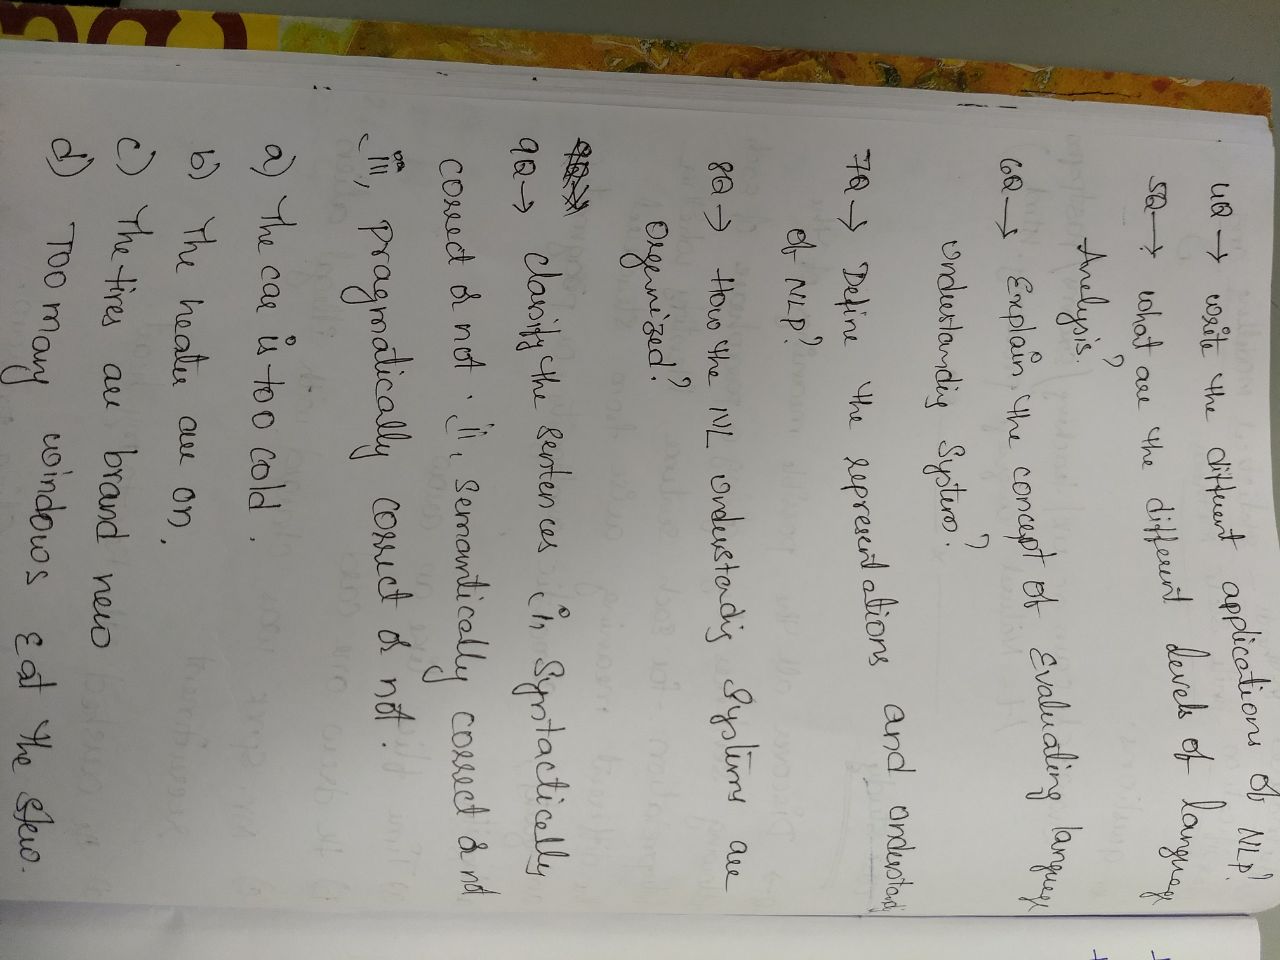 4Q → write the different applications of NLP?
5Q → what are the different levels of language
Analysis?
6Q → Explain the concept of Evaluating language
Understanding Systems?
7Q → Define the representations and understandg
of NLP?
8Q → How the NL Understandig Systems are
Organized?
9Q → classify the sentences i, Syntactically
correct or not. ii, semantically correct or not
iii, pragmatically correct or not.
a) The car is too cold.
b) The heater are on.
c) The tires are brand new
d) Too many windows Eat the stew.